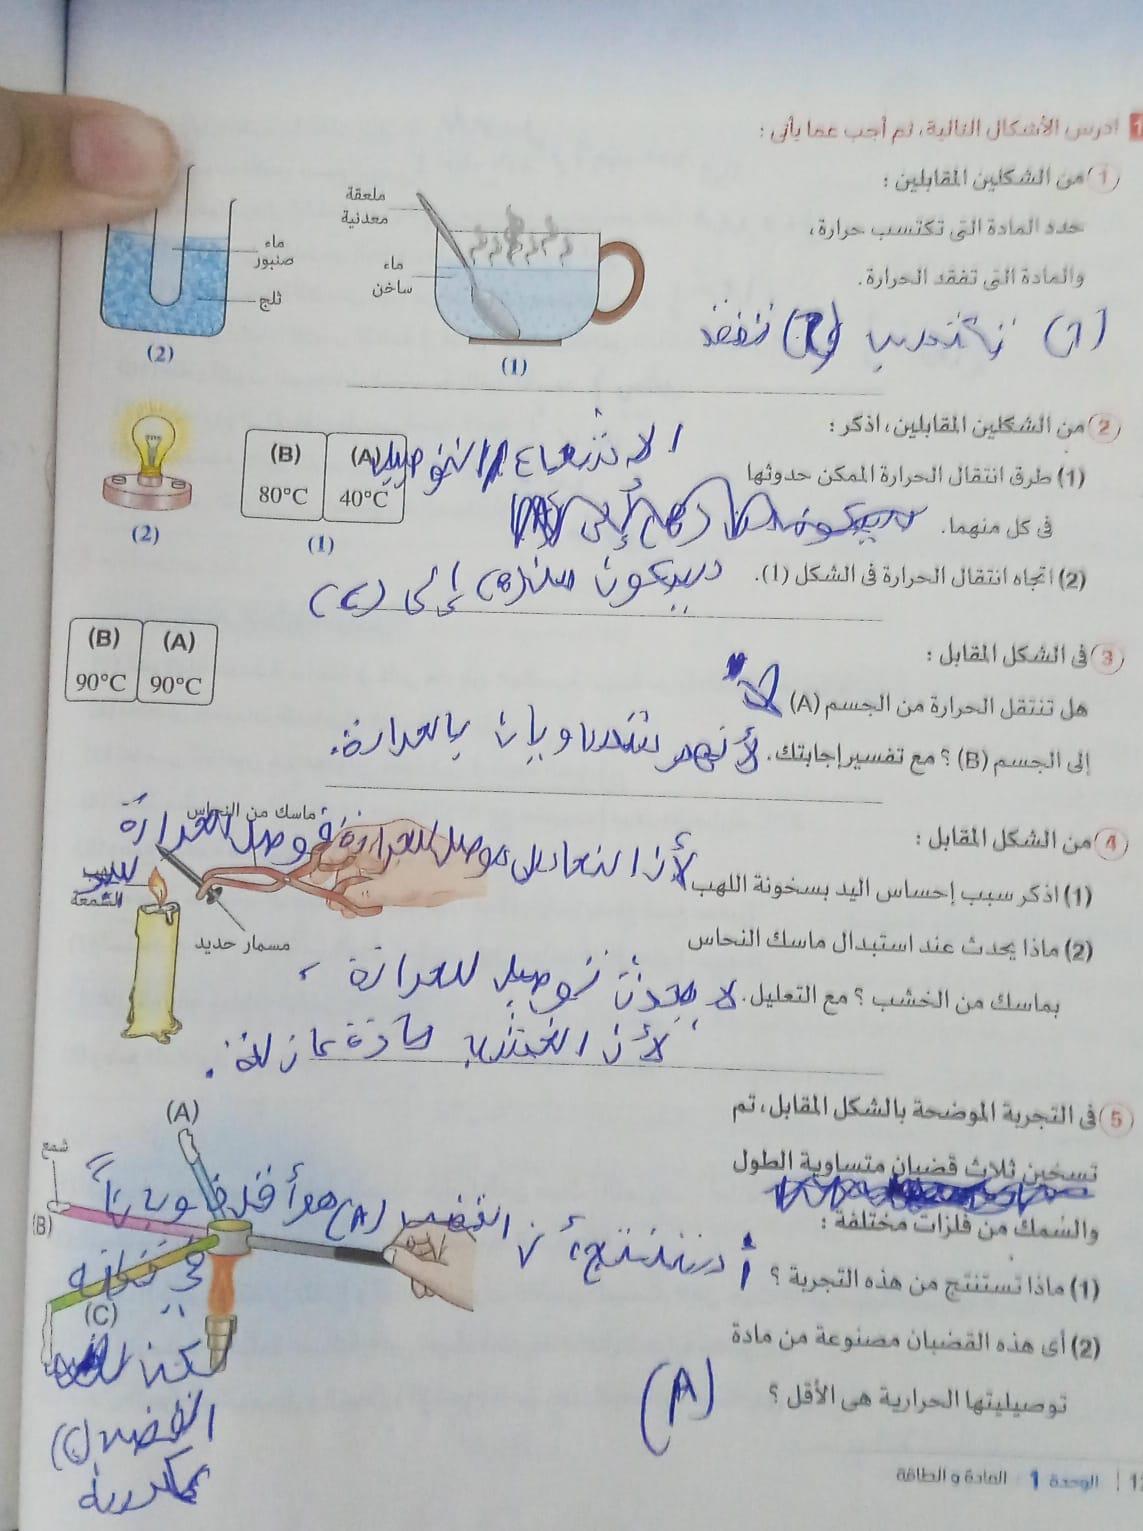 ادرس الأشكال التالية، ثم أجب عما يأتى :
1 من الشكلين المقابلين :
حدد المادة التى تكتسب حرارة،
والمادة التى تفقد الحرارة.
(1) تكتسب (2) تفقد
ملعقة
معدنية
ماء
ساخن
(1)
ماء
صنبور
ثلج
(2)
2 من الشكلين المقابلين، اذكر :
(1) طرق انتقال الحرارة الممكن حدوثها
فى كل منهما.
الاشعاع التوصيل
(2) اتجاه انتقال الحرارة فى الشكل (1).
سيكون من (B) إلى
(A)
40°C
(B)
80°C
(1)
(2)
3 فى الشكل المقابل :
هل تنتقل الحرارة من الجسم (A)
إلى الجسم (B) ؟ مع تفسير إجابتك.
لا
لأنهم متساويان بالحرارة.
(A)
90°C
(B)
90°C
4 من الشكل المقابل :
(1) اذكر سبب إحساس اليد بسخونة اللهب
لأن النحاس موصل للحرارة
(2) ماذا يحدث عند استبدال ماسك النحاس
بماسك من الخشب ؟ مع التعليل.
لا يحدث توصيل للحرارة
لأن الخشب مادة عازلة.
ماسك من النحاس
الشمعة
مسمار حديد
5 فى التجربة الموضحة بالشكل المقابل، تم
تسخين ثلاث قضبان متساوية الطول
والسُمك من فلزات مختلفة :
(1) ماذا تستنتج من هذه التجربة ؟
(2) أى هذه القضبان مصنوعة من مادة
توصيليتها الحرارية هى الأقل ؟
(A)
(A)
شمع
(B)
(C)
الوحدة 1 المادة و الطاقة